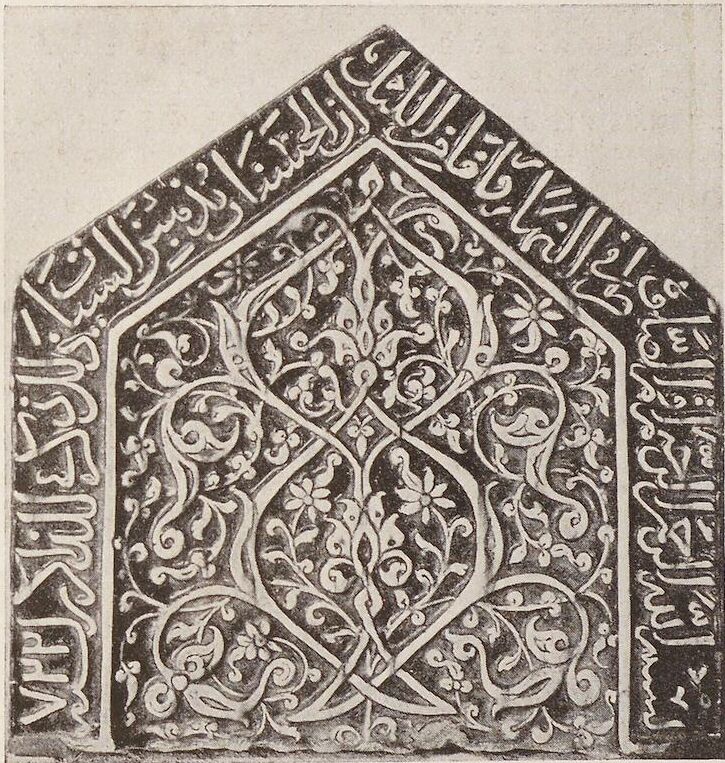 بسم الله الرحمن الرحيم اقم الصلوة
طرفي النهار وزلفا من الليل
ان الحسنات يذهبن السيئات
ذلك ذكرى للذاكرين